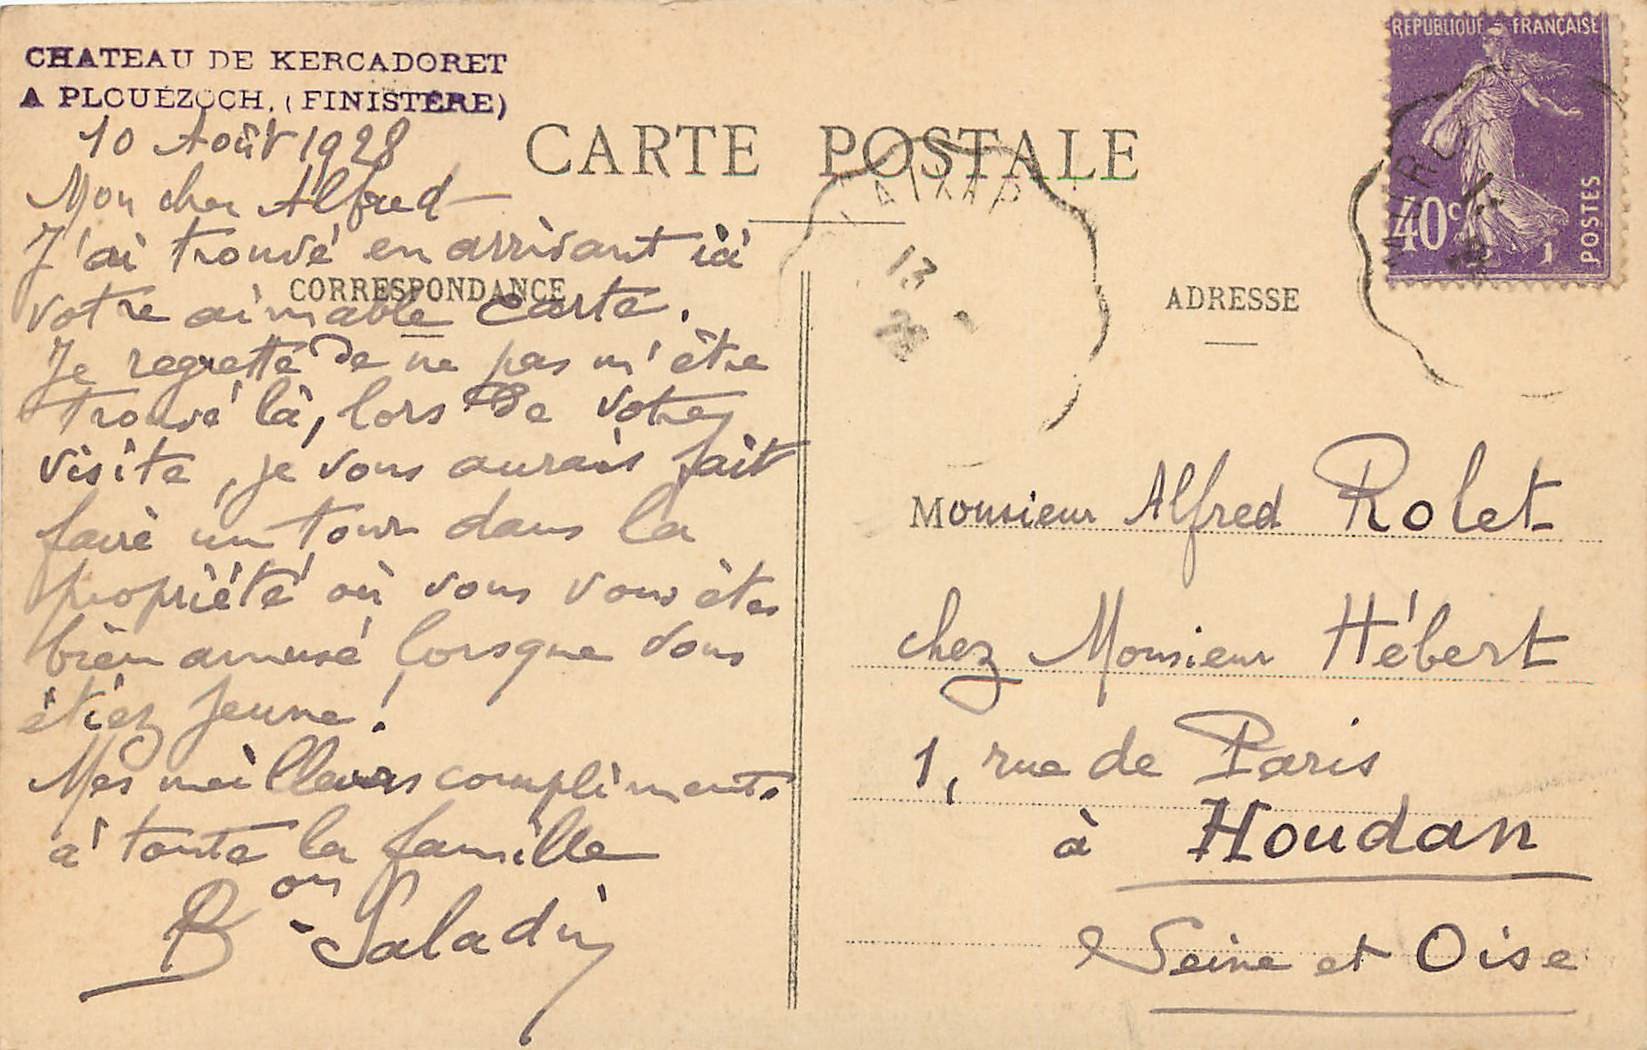 CHATEAU DE KERCADORET
A PLOUÉZOCH, (FINISTÈRE)
10 Août 1928
Mon cher Alfred
J'ai trouvé en arrivant ici
votre aimable carte.
Je regrette de ne pas m'être
trouvé là, lors de votre
visite, je vous aurais fait
faire un tour dans la
propriété où vous vous êtes
bien amusé lorsque vous
étiez jeune!
Mes meilleurs compliments
à toute la famille
Bon Saladin
CARTE POSTALE
CORRESPONDANCE
ADRESSE
REPUBLIQUE FRANÇAISE
40c
POSTES
13
28
Monsieur Alfred Rolet
chez Monsieur Hébert
1, rue de Paris
à Houdan
Seine et Oise